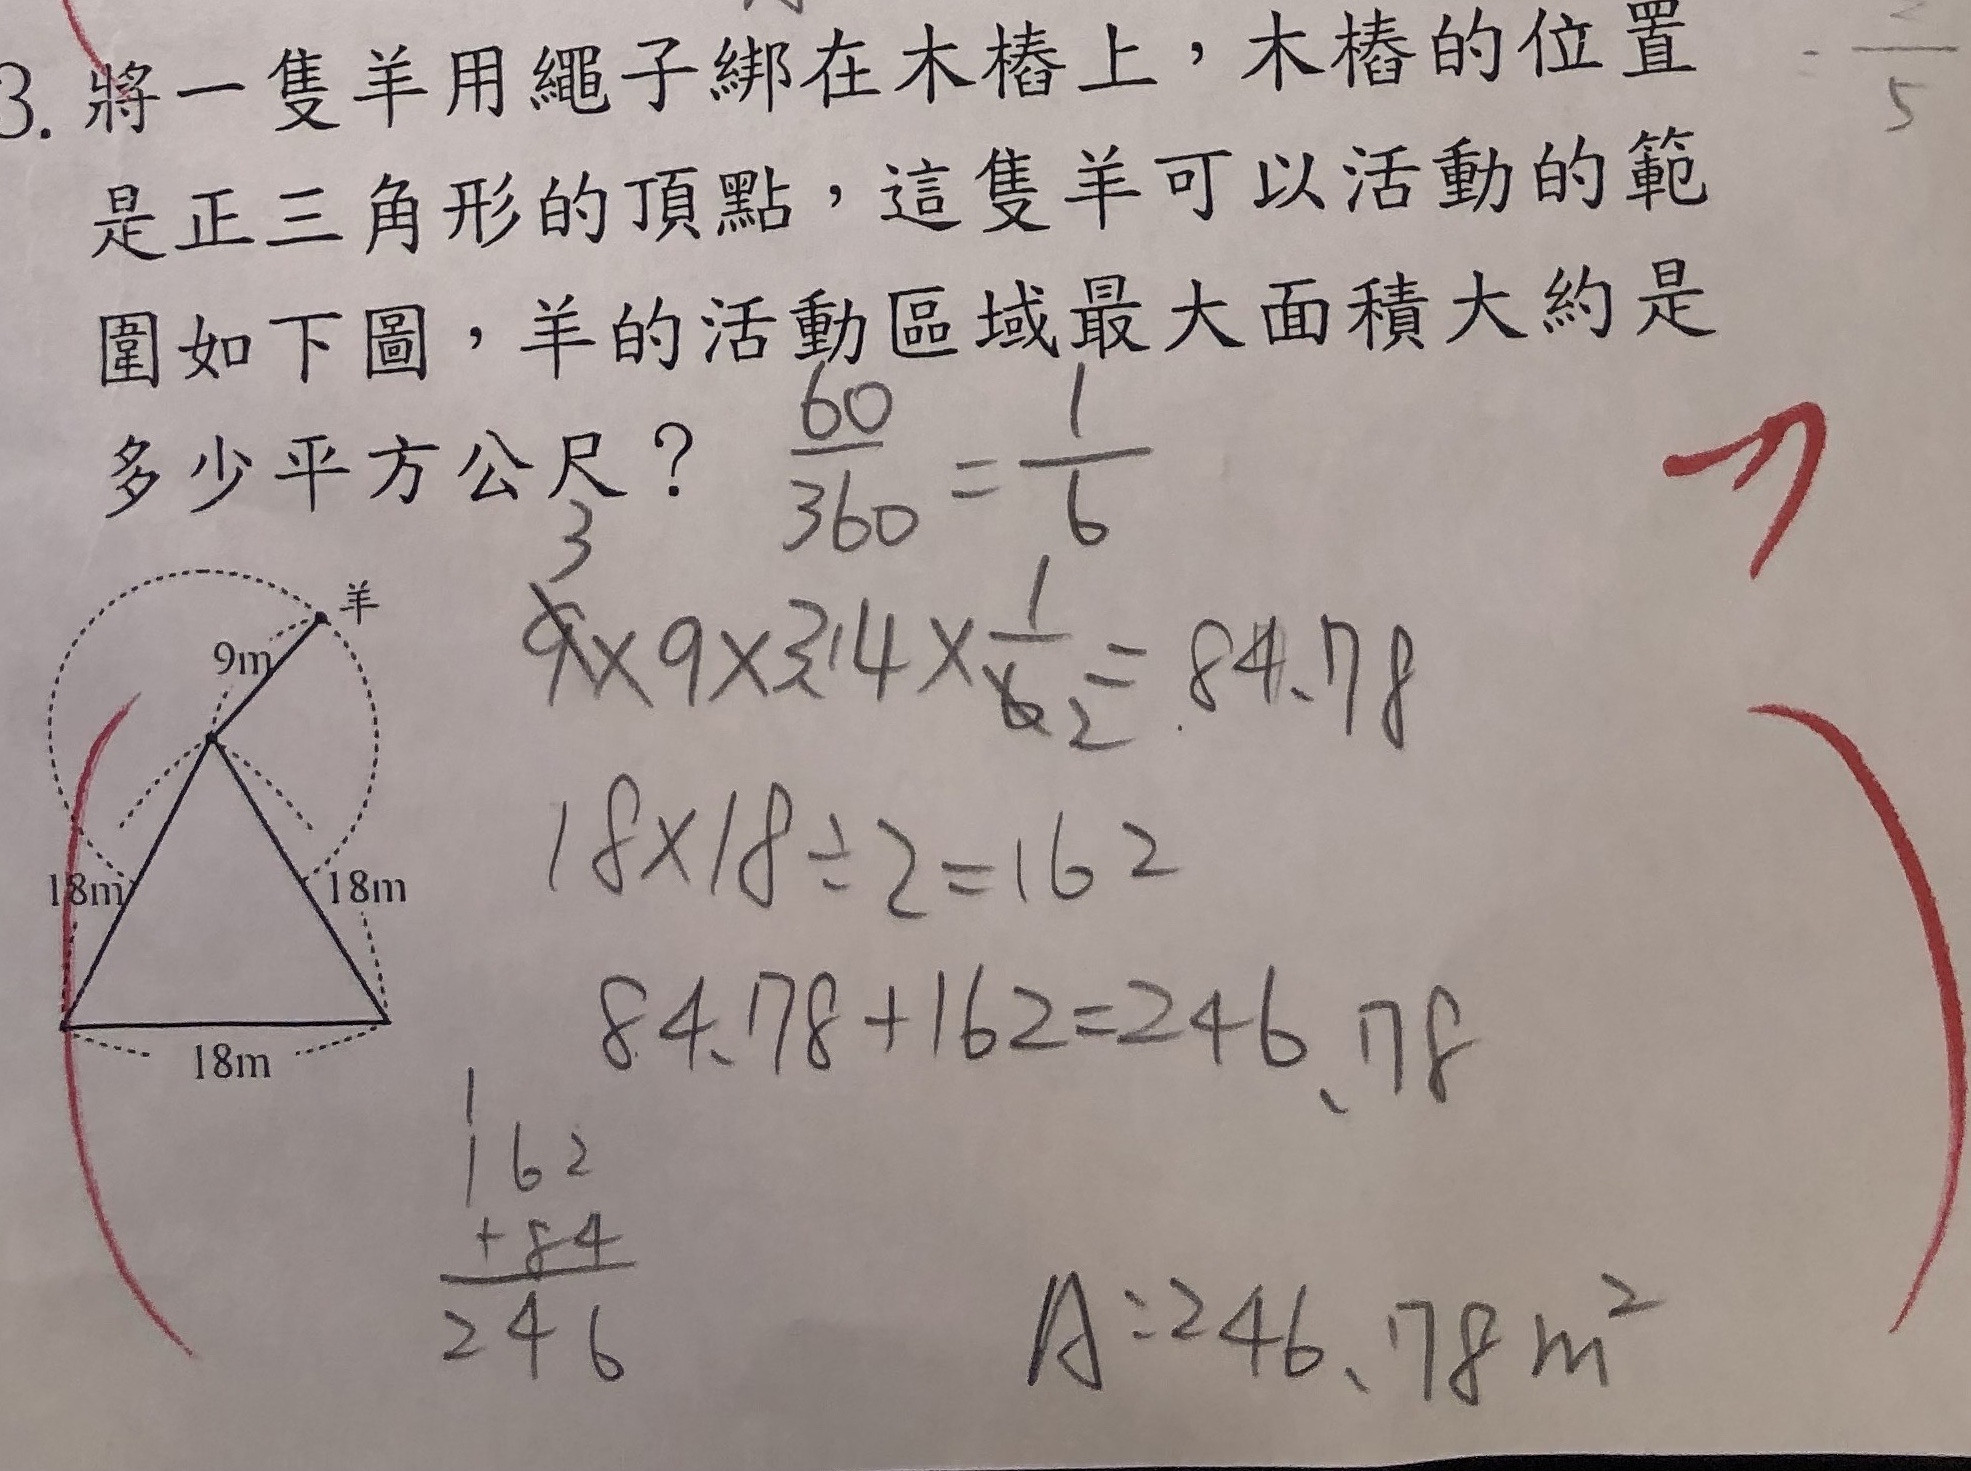 3. 將一隻羊用繩子綁在木樁上，木樁的位置
是正三角形的頂點，這隻羊可以活動的範
圍如下圖，羊的活動區域最大面積大約是
多少平方公尺？
60/360 = 1/6
3
9×9×3.14×1/6 2=84.78
18×18÷2=162
84.78+162=246.78
羊
9m
18m
18m
18m
1
162
+84
246
A:246.78m²
5